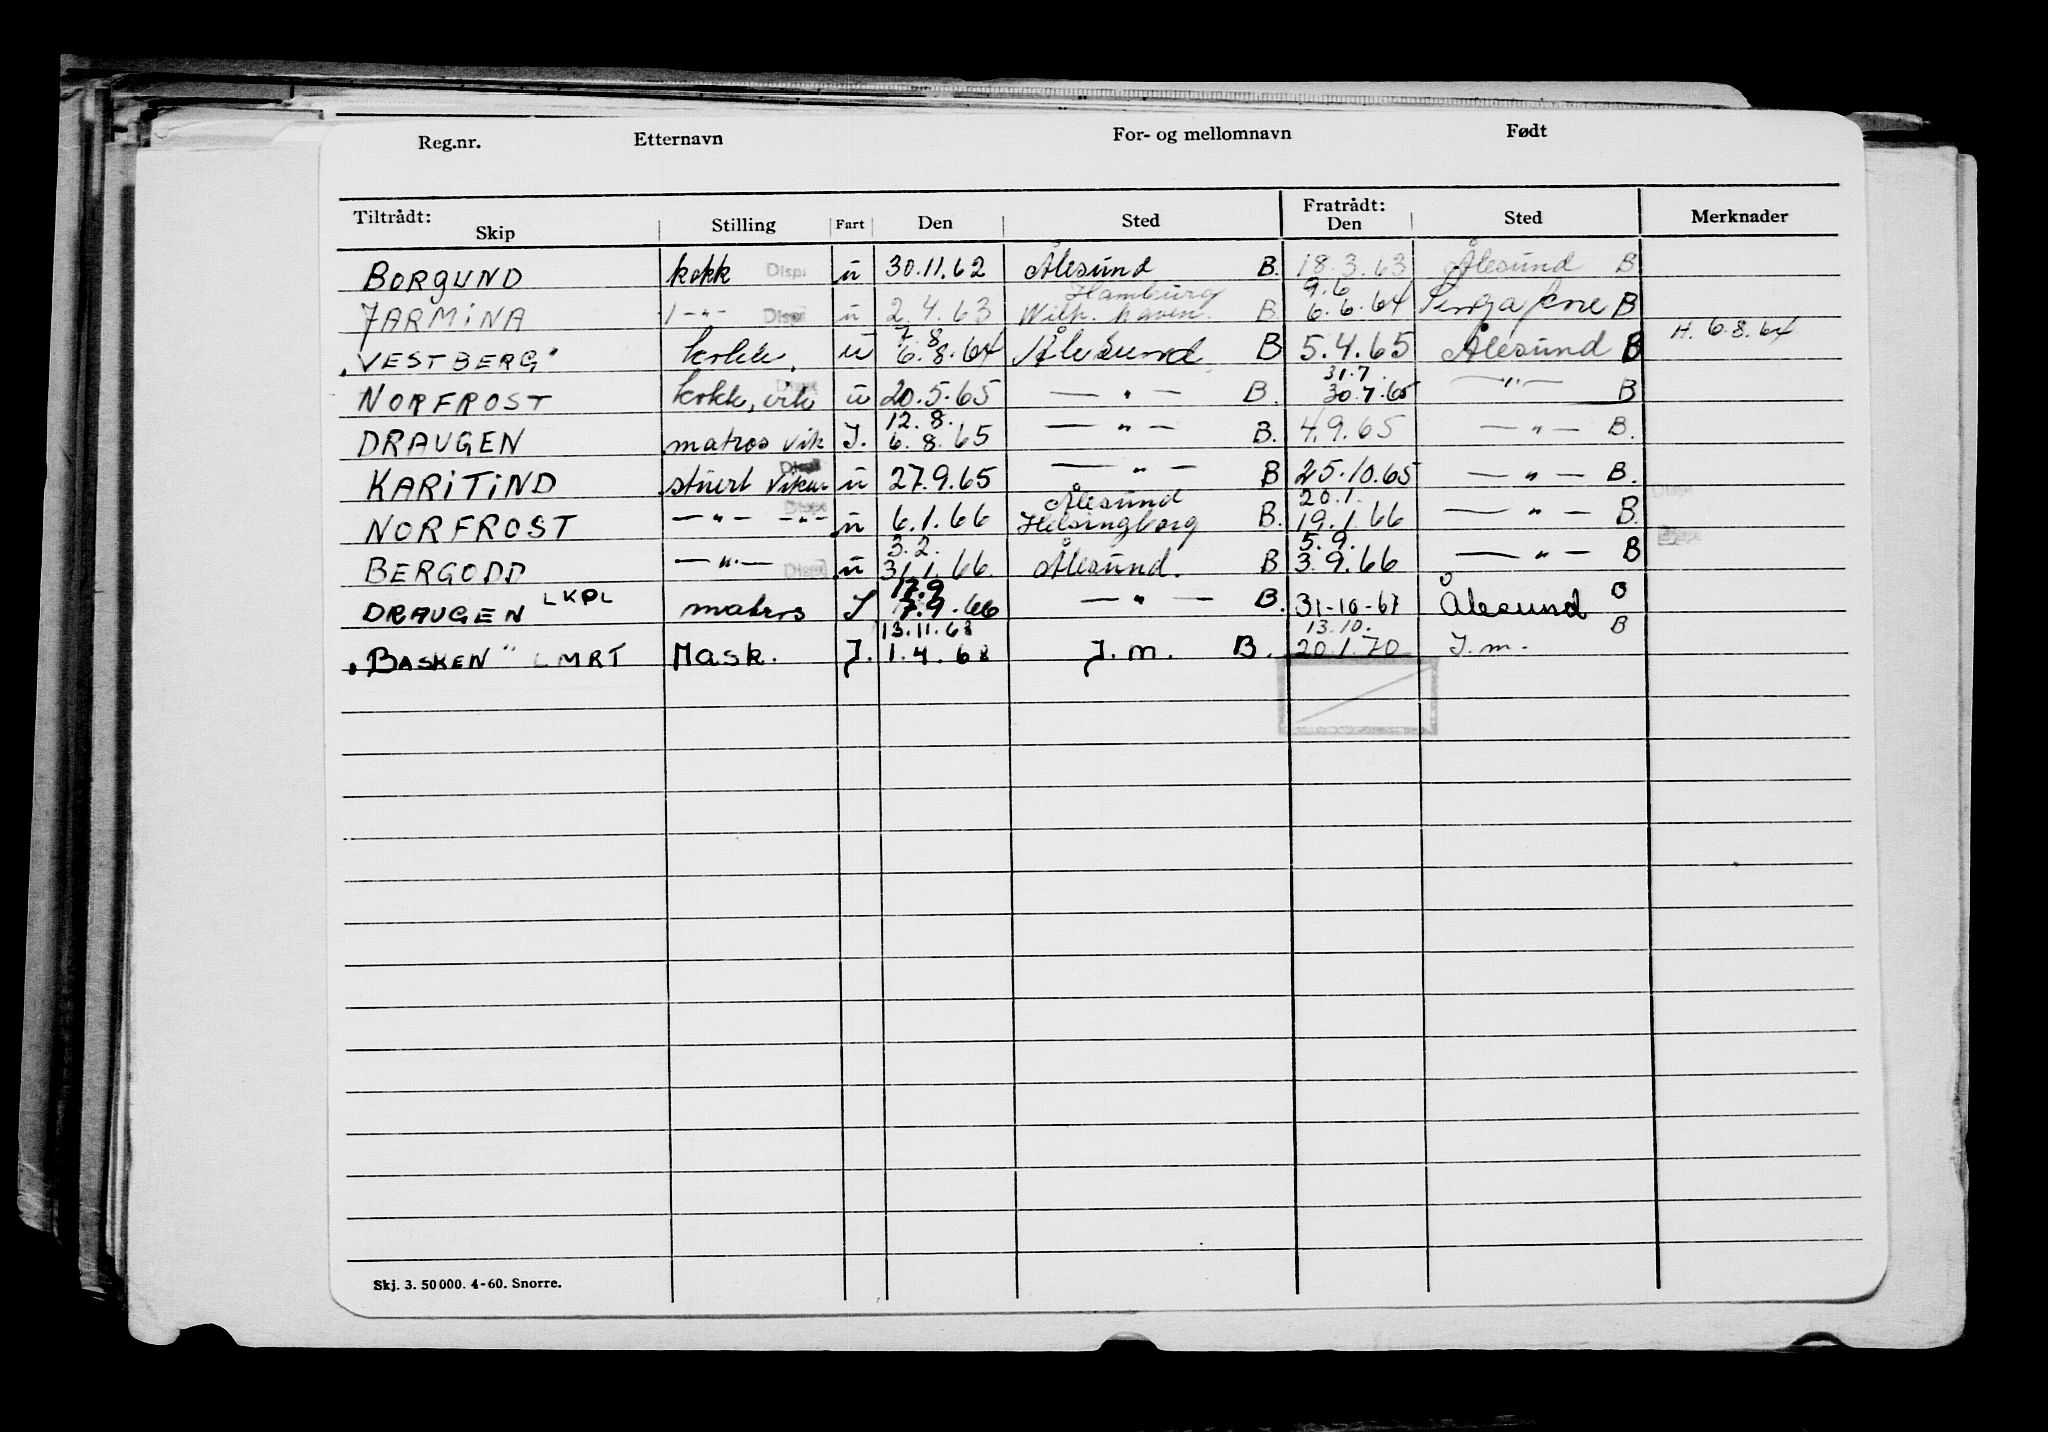 Reg.nr. Etternavn For- og mellomnavn Født
Tiltrådt: Skip Stilling Fart Den Sted Fratrådt: Den Sted Merknader
BORGUND kokk Dispi u 30.11.62 Ålesund B. 18.3.63 Ålesund B.
Hamburg 9.6
JARMINA 1 -"- Disp u 2.4.63 Wilh. haven. B 6.6.64 B
7.8 H. 6.8.64
"VESTBERG" kokk. u 6.8.64 Ålesund B 5.4.65 Ålesund B
31.7.
NORFROST kokk, vik u 20.5.65 — " — B. 30.7.65 — " — B
12.8.
DRAUGEN matros vik J. 6.8.65 — " — B. 4.9.65 — " — B.
KARITIND stuert vikar u 27.9.65 — " — B 25.10.65 — " — B.
Ålesund 20.1.
NORFROST — " — — " — u 6.1.66 Helsingborg B. 19.1.66 — " — B.
3.2. 5.9.
BERGODD — " — u 31.1.66. Ålesund. B 3.9.66 — " — B
17.9
DRAUGEN LKPL matros J 7.9.66 — " — B. 31-10-67 Ålesund O
13.11.68 13.10. B
"BASKEN" LMRT Mask. J. 1.4.68 J.m. B. 20.1.70 J.m.
Skj. 3. 50 000. 4-60. Snorre.